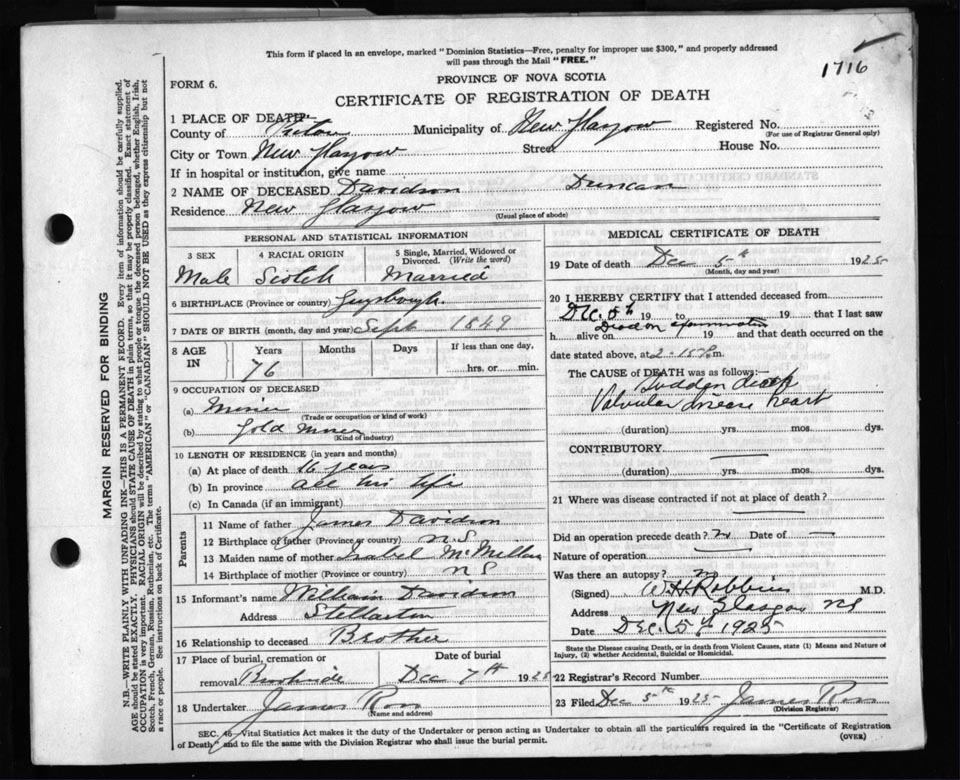 This form if placed in an envelope, marked "Dominion Statistics—Free, penalty for improper use $300," and properly addressed
will pass through the Mail "FREE."
1716
FORM 6.
PROVINCE OF NOVA SCOTIA
CERTIFICATE OF REGISTRATION OF DEATH
1 PLACE OF DEATH
County of Pictou Municipality of New Glasgow Registered No.
(For use of Registrar General only)
City or Town New Glasgow Street House No.
If in hospital or institution, give name
2 NAME OF DECEASED Davidson Duncan
Residence New Glasgow
(Usual place of abode)
PERSONAL AND STATISTICAL INFORMATION
3 SEX 4 RACIAL ORIGIN 5 Single, Married, Widowed or Divorced. (Write the word)
Male Scotch Married
6 BIRTHPLACE (Province or country) Guysborough
7 DATE OF BIRTH (month, day and year) Sept 1849
8 AGE IN Years Months Days If less than one day,
76 hrs. or min.
9 OCCUPATION OF DECEASED
(a) Miner
(Trade or occupation or kind of work)
(b) Gold Miner
(Kind of industry)
10 LENGTH OF RESIDENCE (in years and months)
(a) At place of death 16 years
(b) In province all his life
(c) In Canada (if an immigrant)
Parents
11 Name of father James Davidson
12 Birthplace of father (Province or country) N.S
13 Maiden name of mother Isabel McMillan
14 Birthplace of mother (Province or country) N S
15 Informant's name William Davidson
Address Stellarton
16 Relationship to deceased Brother
17 Place of burial, cremation or Date of burial
removal Dec 7th 1925
18 Undertaker James Ross
(Name and address)
MEDICAL CERTIFICATE OF DEATH
19 Date of death Dec 5th 1925
(Month, day and year)
20 I HEREBY CERTIFY that I attended deceased from
Dec. 5th 19 to 19 that I last saw
h alive on Dead on examination 19 and that death occurred on
date stated above, at 2-15 P.m.
The CAUSE of DEATH was as follows:—
Sudden death
Valvular disease heart
(duration) yrs. mos. dys.
CONTRIBUTORY.
(duration) yrs. mos. dys.
21 Where was disease contracted if not at place of death?
Did an operation precede death? No Date of —
Nature of operation
Was there an autopsy? no
(Signed) W H Robbins M.D.
Address New Glasgow NS
Date Dec. 5th 1925
State the Disease causing Death, or in death from Violent Causes, state (1) Means and Nature of
Injury, (2) whether Accidental, Suicidal or Homicidal.
22 Registrar's Record Number
23 Filed Dec 5th 1925 James Ross
(Division Registrar)
SEC. 46—Vital Statistics Act makes it the duty of the Undertaker or person acting as Undertaker to obtain all the particulars required in the "Certificate of Registration
of Death" and to file the same with the Division Registrar who shall issue the burial permit.
(OVER)
MARGIN RESERVED FOR BINDING
N.B.—WRITE PLAINLY WITH UNFADING INK—THIS IS A PERMANENT RECORD. Every item of information should be carefully supplied.
AGE should be stated EXACTLY. PHYSICIANS should STATE CAUSE OF DEATH in plain terms, so that it may be properly classified. Exact statement of
OCCUPATION is very important. RACIAL ORIGIN will be described by stating to what people or tongue the deceased person belonged, whether English, Irish,
Scotch, French, German, Russian, Ruthenian, etc. The terms "AMERICAN" or "CANADIAN" SHOULD NOT BE USED as they express citizenship but not
a race or people. See instructions on back of Certificate.